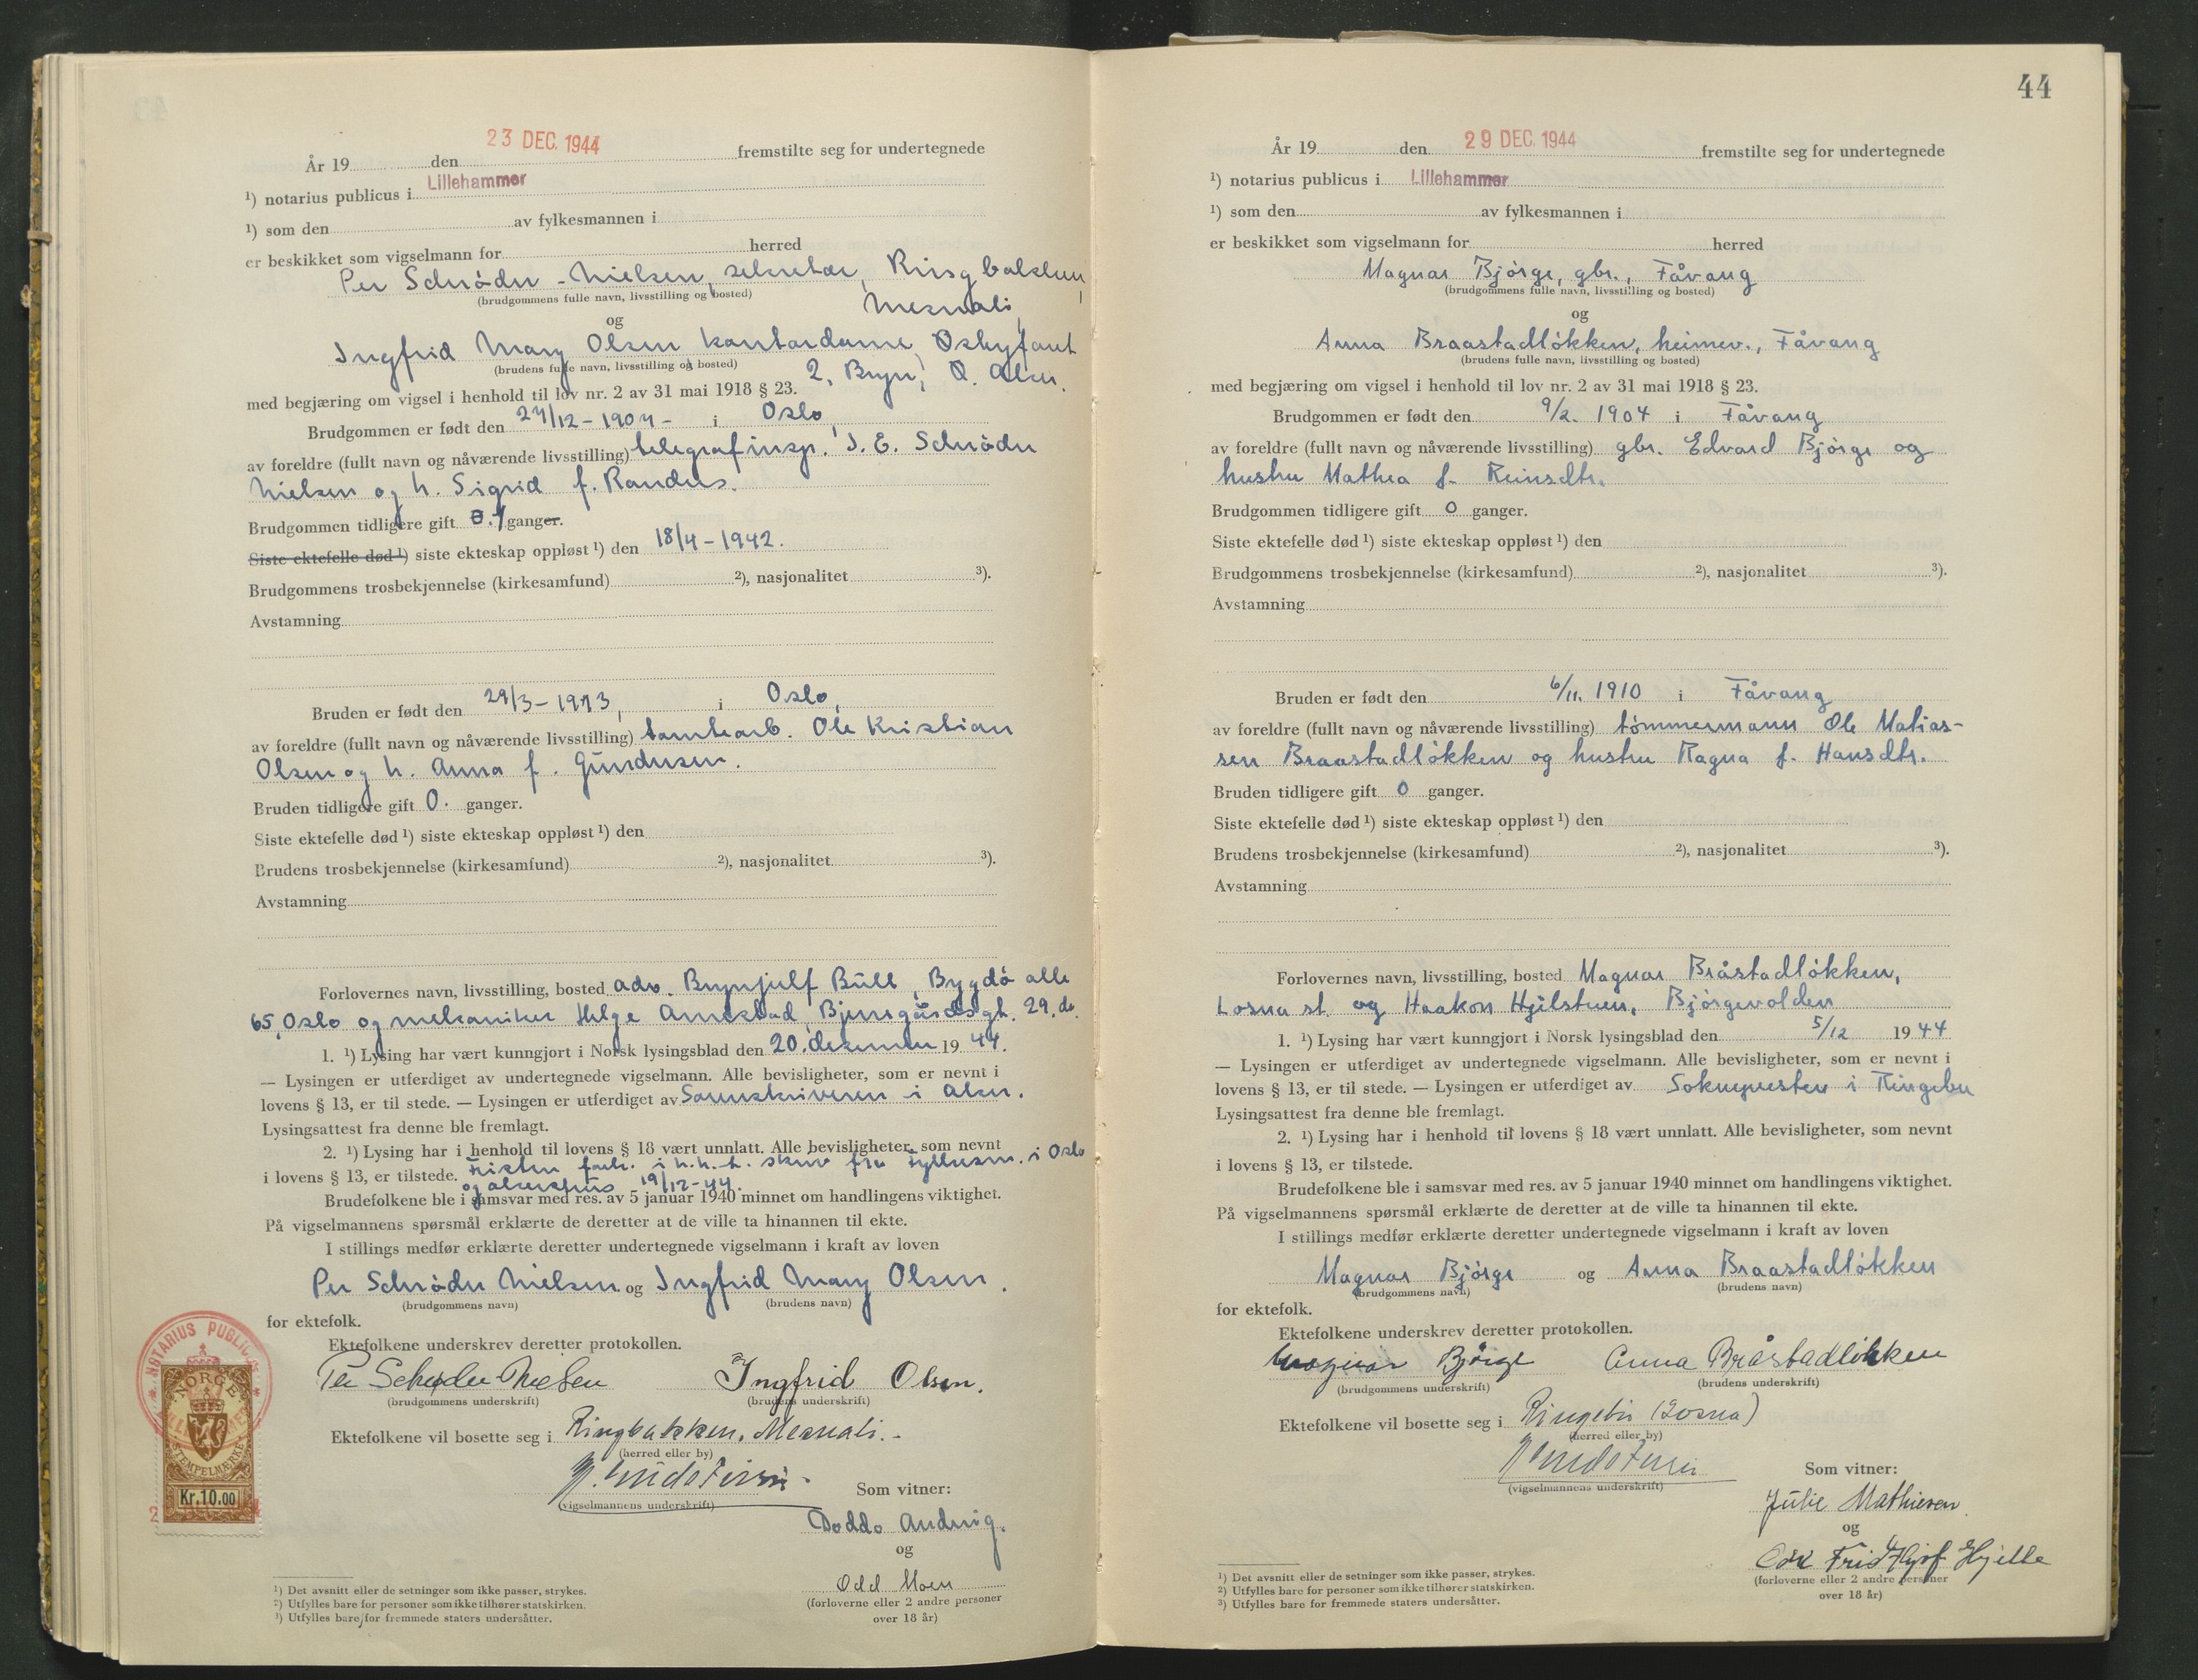 År 19 den 23 DEC. 1944 fremstilte seg for undertegnede
¹) notarius publicus i Lillehammer
¹) som den av fylkesmannen i
er beskikket som vigselmann for herred
Per Schrøder-Nielsen, sekretær,
(brudgommens fulle navn, livsstilling og bosted)
Mesnali,
og
Ingfrid Mary Olsen kontordame
(brudens fulle navn, livsstilling og bosted)
2, Bryn, Ø. Aker.
med begjæring om vigsel i henhold til lov nr. 2 av 31 mai 1918 § 23.
Brudgommen er født den 27/12-1907- i Oslo,
av foreldre (fullt navn og nåværende livsstilling) telegrafinsp. J. E. Schrøder
Nielsen og h. Sigrid f. Randers.
Brudgommen tidligere gift 0. 1 ganger.
Siste ektefelle død ¹) siste ekteskap oppløst ¹) den 18/4-1942.
Brudgommens trosbekjennelse (kirkesamfund) ²), nasjonalitet ³).
Avstamning
Bruden er født den 29/3-1913, i Oslo,
av foreldre (fullt navn og nåværende livsstilling) tomtearb. Ole Kristian
Olsen og h. Anna f. Gundersen.
Bruden tidligere gift 0. ganger.
Siste ektefelle død ¹) siste ekteskap oppløst ¹) den
Brudens trosbekjennelse (kirkesamfund) ²), nasjonalitet ³).
Avstamning
Forlovernes navn, livsstilling, bosted adv. Brynjulf Bull, Bygdø alle
65, Oslo og mekaniker Helge Amestad, 29. do.
1. ¹) Lysing har vært kunngjort i Norsk lysingsblad den 20. desember 19 44.
— Lysingen er utferdiget av undertegnede vigselmann. Alle bevisligheter, som er nevnt i
lovens § 13, er til stede. — Lysingen er utferdiget av Sorenskriveren i Aker.
Lysingsattest fra denne ble fremlagt.
2. ¹) Lysing har i henhold til lovens § 18 vært unnlatt. Alle bevisligheter, som nevnt
i lovens § 13, er tilstede. Fristen fork. i h.h.t. skriv fra fylkesm. i Oslo
og Akershus 19/12-44.
Brudefolkene ble i samsvar med res. av 5 januar 1940 minnet om handlingens viktighet.
På vigselmannens spørsmål erklærte de deretter at de ville ta hinannen til ekte.
I stillings medfør erklærte deretter undertegnede vigselmann i kraft av loven
Per Schrøder Nielsen og Ingfrid Mary Olsen.
(brudgommens navn) (brudens navn)
for ektefolk.
Ektefolkene underskrev deretter protokollen.
Per Schrøder Nielsen Ingfrid Olsen.
(brudgommens underskrift) (brudens underskrift)
Ektefolkene vil bosette seg i Ringbakken, Mesnali.-
(herred eller by)
(vigselmannens underskrift)
Som vitner:
Doddo
og
Odd Moen
(forloverne eller 2 andre personer
over 18 år)
¹) Det avsnitt eller de setninger som ikke passer, strykes.
²) Utfylles bare for personer som ikke tilhører statskirken.
³) Utfylles bare for fremmede staters undersåtter.
NOTARIUS PUBLICUS
NORGE
STEMPELMÆRKE
Kr.10.00
44
År 19 den 29 DEC. 1944 fremstilte seg for undertegnede
¹) notarius publicus i Lillehammer
¹) som den av fylkesmannen i
er beskikket som vigselmann for herred
Magnar Bjørge, gbr., Fåvang
(brudgommens fulle navn, livsstilling og bosted)
og
Anna Braastadløkken, heimev., Fåvang
(brudens fulle navn, livsstilling og bosted)
med begjæring om vigsel i henhold til lov nr. 2 av 31 mai 1918 § 23.
Brudgommen er født den 9/2. 1904 i Fåvang
av foreldre (fullt navn og nåværende livsstilling) gbr. Edvard Bjørge og
hustru Mathea f. Reinsdtr.
Brudgommen tidligere gift 0 ganger.
Siste ektefelle død ¹) siste ekteskap oppløst ¹) den
Brudgommens trosbekjennelse (kirkesamfund) ²), nasjonalitet ³).
Avstamning
Bruden er født den 6/11. 1910 i Fåvang
av foreldre (fullt navn og nåværende livsstilling) tømmermann Ole Matias-
sen Braastadløkken og hustru Ragna f. Hansdtr.
Bruden tidligere gift 0 ganger.
Siste ektefelle død ¹) siste ekteskap oppløst ¹) den
Brudens trosbekjennelse (kirkesamfund) ²), nasjonalitet ³).
Avstamning
Forlovernes navn, livsstilling, bosted Magnar Bråstadløkken,
Losna st. og Haakon Hjelstuen, Bjørgevolden
1. ¹) Lysing har vært kunngjort i Norsk lysingsblad den 5/12 19 44
— Lysingen er utferdiget av undertegnede vigselmann. Alle bevisligheter, som er nevnt i
lovens § 13, er til stede. — Lysingen er utferdiget av Soknepresten i Ringebu
Lysingsattest fra denne ble fremlagt.
2. ¹) Lysing har i henhold til lovens § 18 vært unnlatt. Alle bevisligheter, som nevnt
i lovens § 13, er tilstede.
Brudefolkene ble i samsvar med res. av 5 januar 1940 minnet om handlingens viktighet.
På vigselmannens spørsmål erklærte de deretter at de ville ta hinannen til ekte.
I stillings medfør erklærte deretter undertegnede vigselmann i kraft av loven
Magnar Bjørge og Anna Braastadløkken
(brudgommens navn) (brudens navn)
for ektefolk.
Ektefolkene underskrev deretter protokollen.
Magnar Bjørge Anna Bråstadløkken
(brudgommens underskrift) (brudens underskrift)
Ektefolkene vil bosette seg i Ringebu (Losna)
(herred eller by)
(vigselmannens underskrift)
Som vitner:
Julie Mathiesen
og
Fridthjof Hjelle
(forloverne eller 2 andre personer
over 18 år)
¹) Det avsnitt eller de setninger som ikke passer, strykes.
²) Utfylles bare for personer som ikke tilhører statskirken.
³) Utfylles bare for fremmede staters undersåtter.